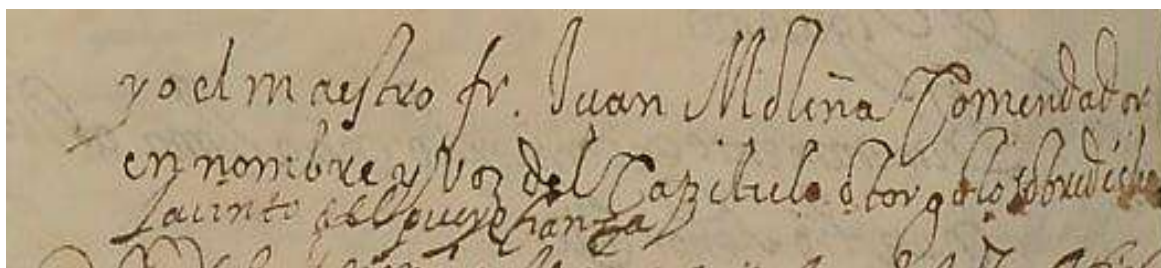 yo el maestro fr. Juan Molina Comendador
en nombre y Voz del Capitulo otorgo lo sobredicho
Jacinto del pueyo Lanza